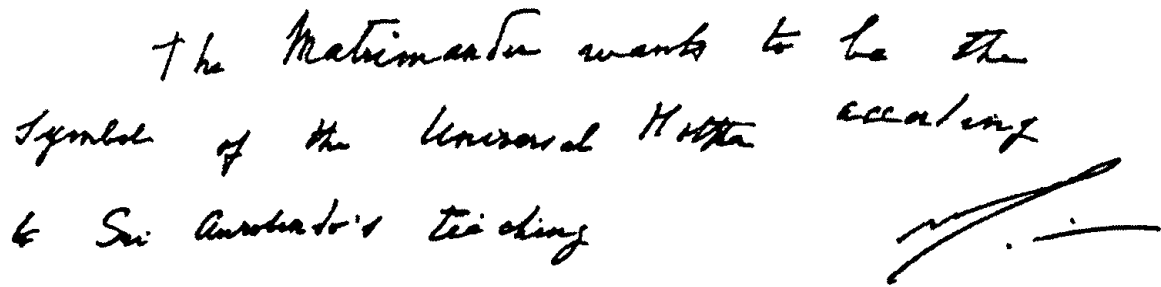 The Matrimandir wants to be the
symbol of the Universal Mother according
to Sri Aurobindo's teaching